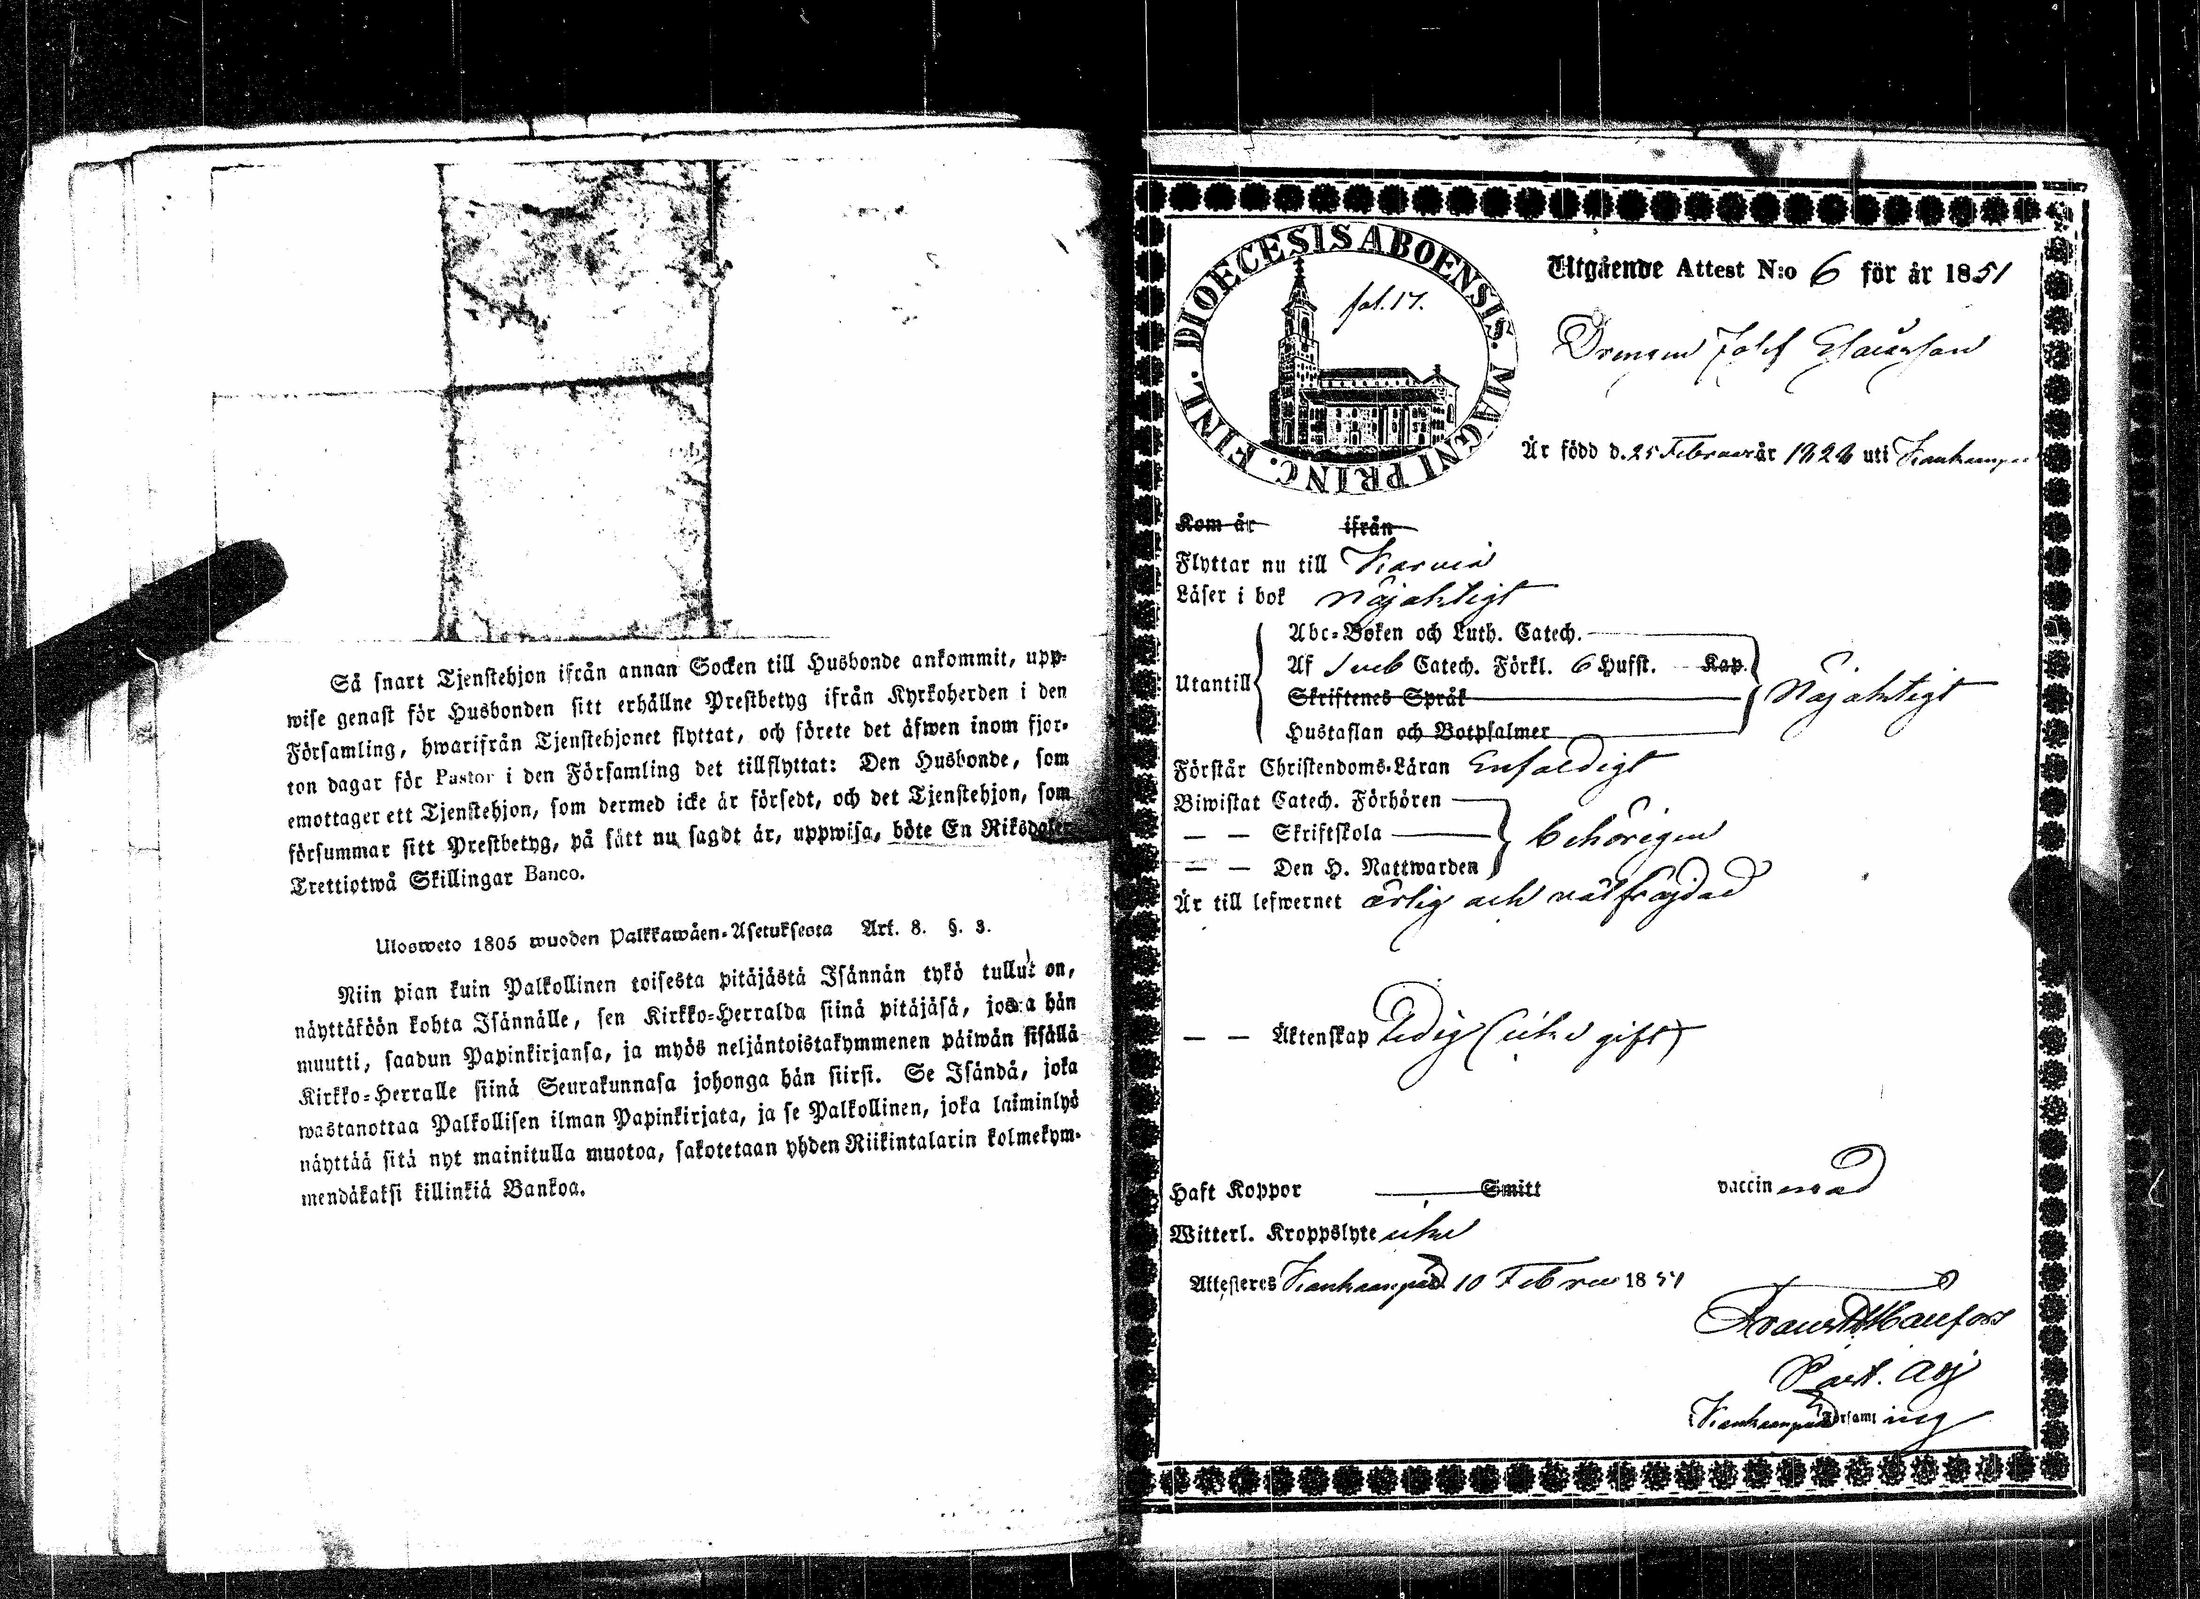 Så snart Tjenstehjon ifrån annan Socken till Husbonde ankommit, upp-
wise genast för Husbonden sitt erhållne Prestbetyg ifrån Kyrkoherden i den
Församling, hwarifrån Tjenstehjonet flyttat, och förete det äfwen inom fjor-
ton dagar för Pastor i den Församling det tillflyttat: Den Husbonde, som
emottager ett Tjenstehjon, som dermed icke är försedt, och det Tjenstehjon, som
försummar sitt Prestbetyg, på sätt nu sagdt är, uppwisa, böte En Riksdaler
Trettiotwå Skillingar Banco.
Ulosweto 1805 wuoden Palkkawäen-Asetuksesta Art. 8. §. 3.
Niin pian kuin Palkollinen toisesta pitäjästä Isännän tykö tullut on,
näyttäköön kohta Isännälle, sen Kirkko-Herralda siinä pitäjäsä, josta hän
muutti, saadun Papinkirjansa, ja myös neljäntoistakymmenen päiwän sisällä
Kirkko-Herralle siinä Seurakunnasa johonga hän siirsi. Se Isändä, joka
wastanottaa Palkollisen ilman Papinkirjata, ja se Palkollinen, joka laiminlyö
näyttää sitä nyt mainitulla muotoa, sakotetaan yhden Riikintalarin kolmekym-
mendäkaksi killinkiä Bankoa.
DIOECESIS ABOENSIS. MAGNI PRINC. FINL.
fol. 17.
Utgående Attest N:o 6 för år 1851
Drengen Josef Esaiasson
Är född d. 25 Februar år 1828 uti Kankaanpää
Kom år ifrån
Flyttar nu till Karvia
Läser i bok Nöjaktigt
Utantill
Abc-Boken och Luth. Catech.
Af Sveb Catech. Förkl. 6 Hufst. Kap.
Skriftenes Språk
Hustaflan och Botpsalmer
Nöjaktigt
Förstår Christendoms-Läran Enfaldigt
Biwistat Catech. Förhören
— — Skriftskola
— — Den H. Nattwarden
behörigen
Är till lefwernet ärlig och välfrejdad
— — Äktenskap Ledig (icke gift)
Haft Koppor Smitt vaccinerad
Witterl. Kroppslyte icke
Attesteras Kankaanpää d. 10 Februari 1851
Past. Adj
i Kankaanpää Församling